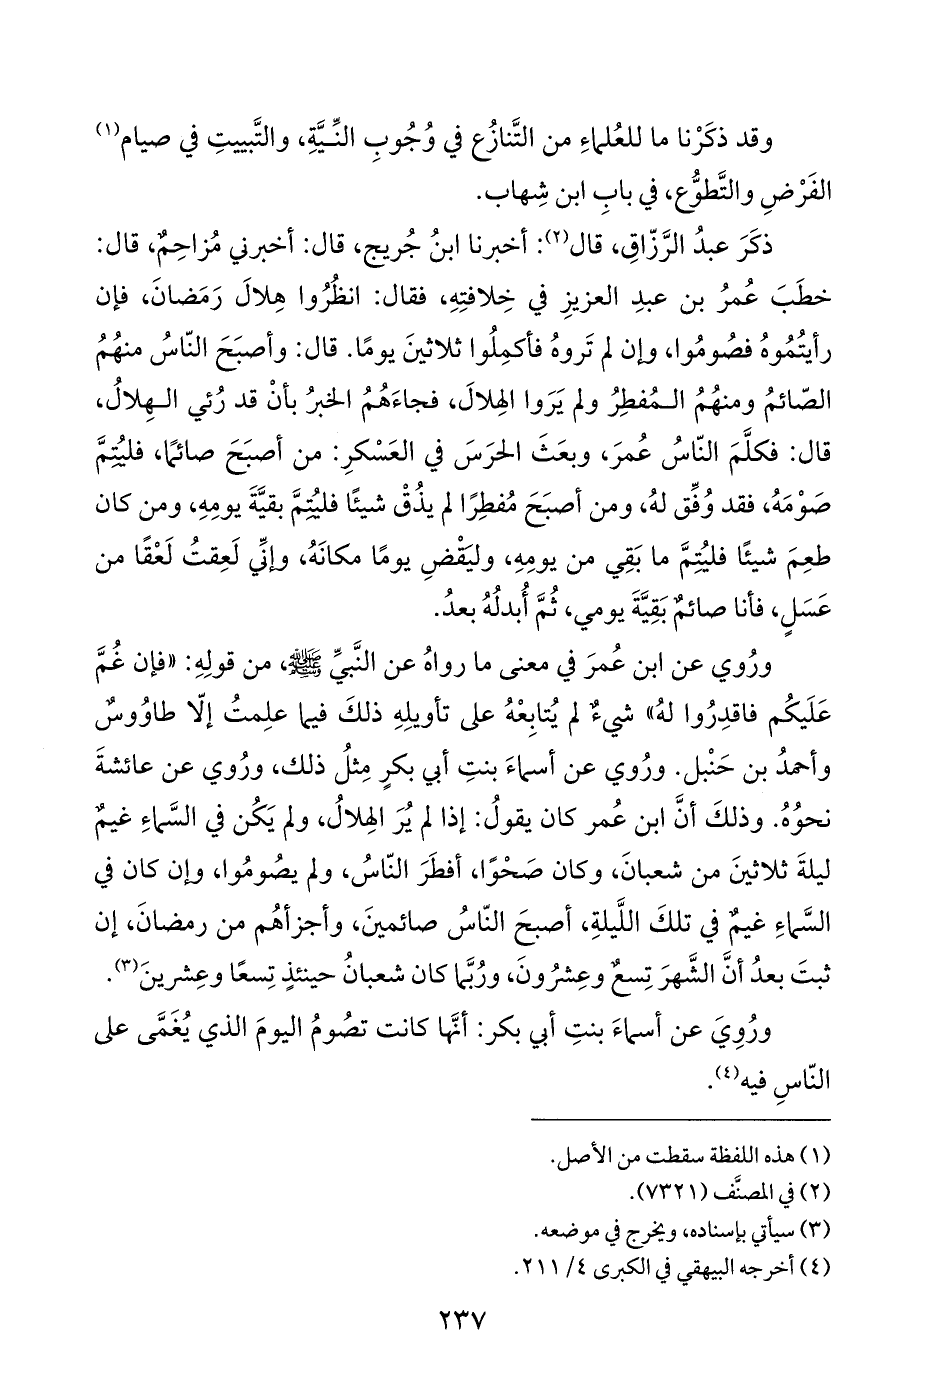 وقد ذكَرْنا ما للعُلماءِ من التَّنازُع في وُجُوبِ النِّـيَّةِ، والتَّبييتِ في صيام(١)
الفَرْضِ والتَّطوُّع، في بابِ ابن شِهاب.
ذكَرَ عبدُ الرَّزّاقِ، قال(٢): أخبرنا ابنُ جُريج، قال: أخبرني مُزاحِمٌ، قال:
خطَبَ عُمرُ بن عبدِ العزيزِ في خِلافتِهِ، فقال: انظُرُوا هِلالَ رَمَضانَ، فإن
رأيتُمُوهُ فصُومُوا، وإن لم تَروهُ فأكمِلُوا ثلاثينَ يومًا. قال: وأصبَحَ النّاسُ منهُمُ
الصّائمُ ومنهُمُ الـمُفطِرُ ولم يَرَوا الهِلالَ، فجاءَهُمُ الخبرُ بأنْ قد رُئي الـهِلالُ،
قال: فكلَّمَ النّاسُ عُمرَ، وبعَثَ الحَرَسَ في العَسْكرِ: من أصبَحَ صائمًا، فليُتِمَّ
صَوْمَهُ، فقد وُفِّق لهُ، ومن أصبَحَ مُفطِرًا لم يذُقْ شيئًا فليُتِمَّ بقيَّةَ يومِهِ، ومن كان
طعِمَ شيئًا فليُتِمَّ ما بَقِي من يومِهِ، وليَقْضِ يومًا مكانَهُ، وإنِّي لَعِقتُ لَعْقًا من
عَسَلٍ، فأنا صائمٌ بَقِيَّةَ يومي، ثُمَّ أُبدلُهُ بعدُ.
ورُوي عن ابن عُمرَ في معنى ما رواهُ عن النَّبيِّ ﷺ، من قولِهِ: «فإن غُمَّ
عَلَيكُم فاقدِرُوا لهُ» شيءٌ لم يُتابِعْهُ على تأويلِهِ ذلكَ فيما علِمتُ إلّا طاوُوسٌ
وأحمدُ بن حَنْبل. ورُوي عن أسماءَ بنتِ أبي بكرٍ مِثلُ ذلك، ورُوي عن عائشةَ
نحوُهُ. وذلكَ أنَّ ابن عُمر كان يقولُ: إذا لم يُرَ الهِلالُ، ولم يَكُن في السَّماءِ غيمٌ
ليلةَ ثلاثينَ من شعبانَ، وكان صَحْوًا، أفطَرَ النّاسُ، ولم يصُومُوا، وإن كان في
السَّماءِ غيمٌ في تلكَ اللَّيلةِ، أصبحَ النّاسُ صائمينَ، وأجزأهُم من رمضانَ، إن
ثبتَ بعدُ أنَّ الشَّهرَ تِسعٌ وعِشرُونَ، ورُبَّما كان شعبانُ حينئذٍ تِسعًا وعِشرينَ(٣).
ورُوِيَ عن أسماءَ بنتِ أبي بكر: أنَّها كانت تصُومُ اليومَ الذي يُغَمَّى على
النّاسِ فيه(٤).
(١) هذه اللفظة سقطت من الأصل.
(٢) في المصنَّف (٧٣٢١).
(٣) سيأتي بإسناده، ويخرج في موضعه.
(٤) أخرجه البيهقي في الكبرى ٤/ ٢١١.
٢٣٧